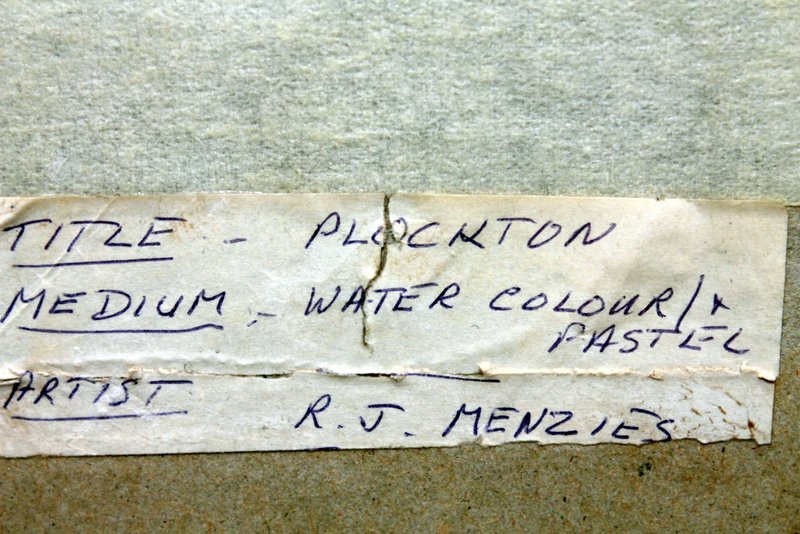 TITLE - PLOCKTON
MEDIUM - WATER COLOUR/+
PASTEL
ARTIST
R.J. MENZIES